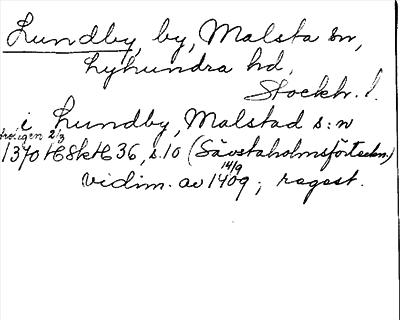 Lundby, by, Malsta sn,
Lyhundra hd,
Stockh. l.
i Lundby, Malstad s:n
2/3
1370 HSkH 36, s. 10 (Sävstaholmsförteckn.)
14/9
vidim. av 1409; regest.